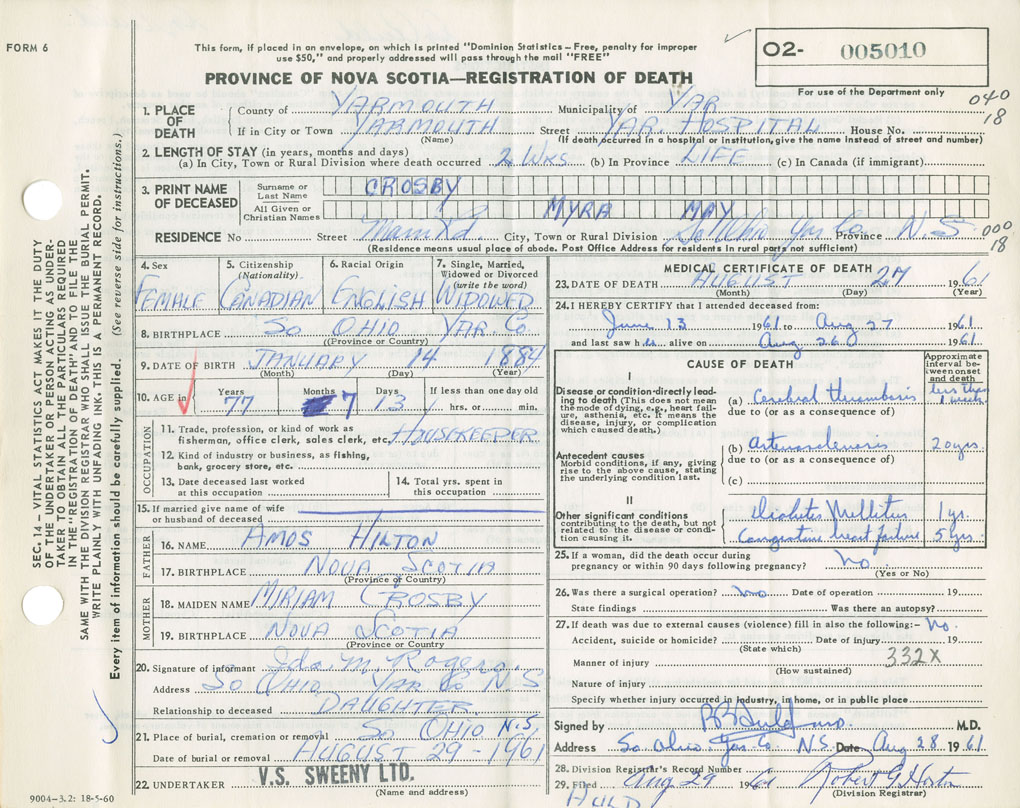 FORM 6
This form, if placed in an envelope, on which is printed "Dominion Statistics – Free, penalty for improper
use $50," and properly addressed will pass through the mail "FREE"
PROVINCE OF NOVA SCOTIA—REGISTRATION OF DEATH
O2- 005010
For use of the Department only
040
18
1. PLACE OF DEATH
County of YARMOUTH Municipality of YAR
If in City or Town YARMOUTH Street YAR. HOSPITAL House No.
(Name) (If death occurred in a hospital or institution, give the name instead of street and number)
2. LENGTH OF STAY (in years, months and days)
(a) In City, Town or Rural Division where death occurred 2 WKS (b) In Province LIFE (c) In Canada (if immigrant)
3. PRINT NAME OF DECEASED
Surname or Last Name CROSBY
All Given or Christian Names MYRA MAY
RESIDENCE No Street Main Rd. City, Town or Rural Division So Ohio Yar Co Province N.S
000
18
(Residence means usual place of abode. Post Office Address for residents in rural parts not sufficient)
4. Sex FEMALE
5. Citizenship (Nationality) CANADIAN
6. Racial Origin ENGLISH
7. Single, Married, Widowed or Divorced (write the word) WIDOWED
8. BIRTHPLACE SO OHIO YAR. CO
(Province or Country)
9. DATE OF BIRTH JANUARY 14 1884
(Month) (Day) (Year)
10. AGE in Years 77 Months 7 Days 13 If less than one day old hrs. or min.
OCCUPATION
11. Trade, profession, or kind of work as
fisherman, office clerk, sales clerk, etc. HOUSEKEEPER
12. Kind of industry or business, as fishing,
bank, grocery store, etc.
13. Date deceased last worked
at this occupation
14. Total yrs. spent in
this occupation
15. If married give name of wife
or husband of deceased
FATHER
16. NAME AMOS HILTON
17. BIRTHPLACE NOVA SCOTIA
(Province or Country)
MOTHER
18. MAIDEN NAME MIRIAM CROSBY
19. BIRTHPLACE NOVA SCOTIA
(Province or Country)
20. Signature of informant Ida M. Rogers
Address SO OHIO YAR CO N.S
Relationship to deceased DAUGHTER
21. Place of burial, cremation or removal SO OHIO N.S.
Date of burial or removal AUGUST 29 - 1961
22. UNDERTAKER V.S. SWEENY LTD.
(Name and address)
9004-3.2: 18-5-60
MEDICAL CERTIFICATE OF DEATH
23. DATE OF DEATH AUGUST 27 1961
(Month) (Day) (Year)
24. I HEREBY CERTIFY that I attended deceased from:
June 13 1961 to Aug 27 1961
and last saw her alive on Aug 26 1961
CAUSE OF DEATH
Approximate
interval be-
tween onset
and death
I
Disease or condition directly lead-
ing to death (This does not mean
the mode of dying, e.g., heart fail-
ure, asthenia, etc. It means the
disease, injury, or complication
which caused death.)
(a) Cerebral thrombosis less than 1 week
due to (or as a consequence of)
Antecedent causes
Morbid conditions, if any, giving
rise to the above cause, stating
the underlying condition last.
(b) Arteriosclerosis 20 yrs.
due to (or as a consequence of)
(c)
II
Other significant conditions
contributing to the death, but not
related to the disease or condi-
tion causing it.
Diabetes Mellitus 1 yr.
Congestive heart failure 5 yrs.
25. If a woman, did the death occur during
pregnancy or within 90 days following pregnancy? No
(Yes or No)
26. Was there a surgical operation? no Date of operation 19
State findings Was there an autopsy?
27. If death was due to external causes (violence) fill in also the following:- No.
Accident, suicide or homicide? Date of injury 19
(State which)
332X
Manner of injury
(How sustained)
Nature of injury
Specify whether injury occurred in industry, in home, or in public place
Signed by M.D.
Address So. Ohio. Yar. Co. N.S. Date Aug 28 1961
28. Division Registrar's Record Number
29. Filed Aug 29 1961 Robert G Horton
(Division Registrar)
AULD
SEC. 14 – VITAL STATISTICS ACT MAKES IT THE DUTY
OF THE UNDERTAKER OR PERSON ACTING AS UNDER-
TAKER TO OBTAIN ALL THE PARTICULARS REQUIRED
IN THE "REGISTRATION OF DEATH" AND TO FILE THE
SAME WITH THE DIVISION REGISTRAR WHO SHALL ISSUE THE BURIAL PERMIT.
WRITE PLAINLY WITH UNFADING INK. THIS IS A PERMANENT RECORD.
Every item of information should be carefully supplied. (See reverse side for instructions.)